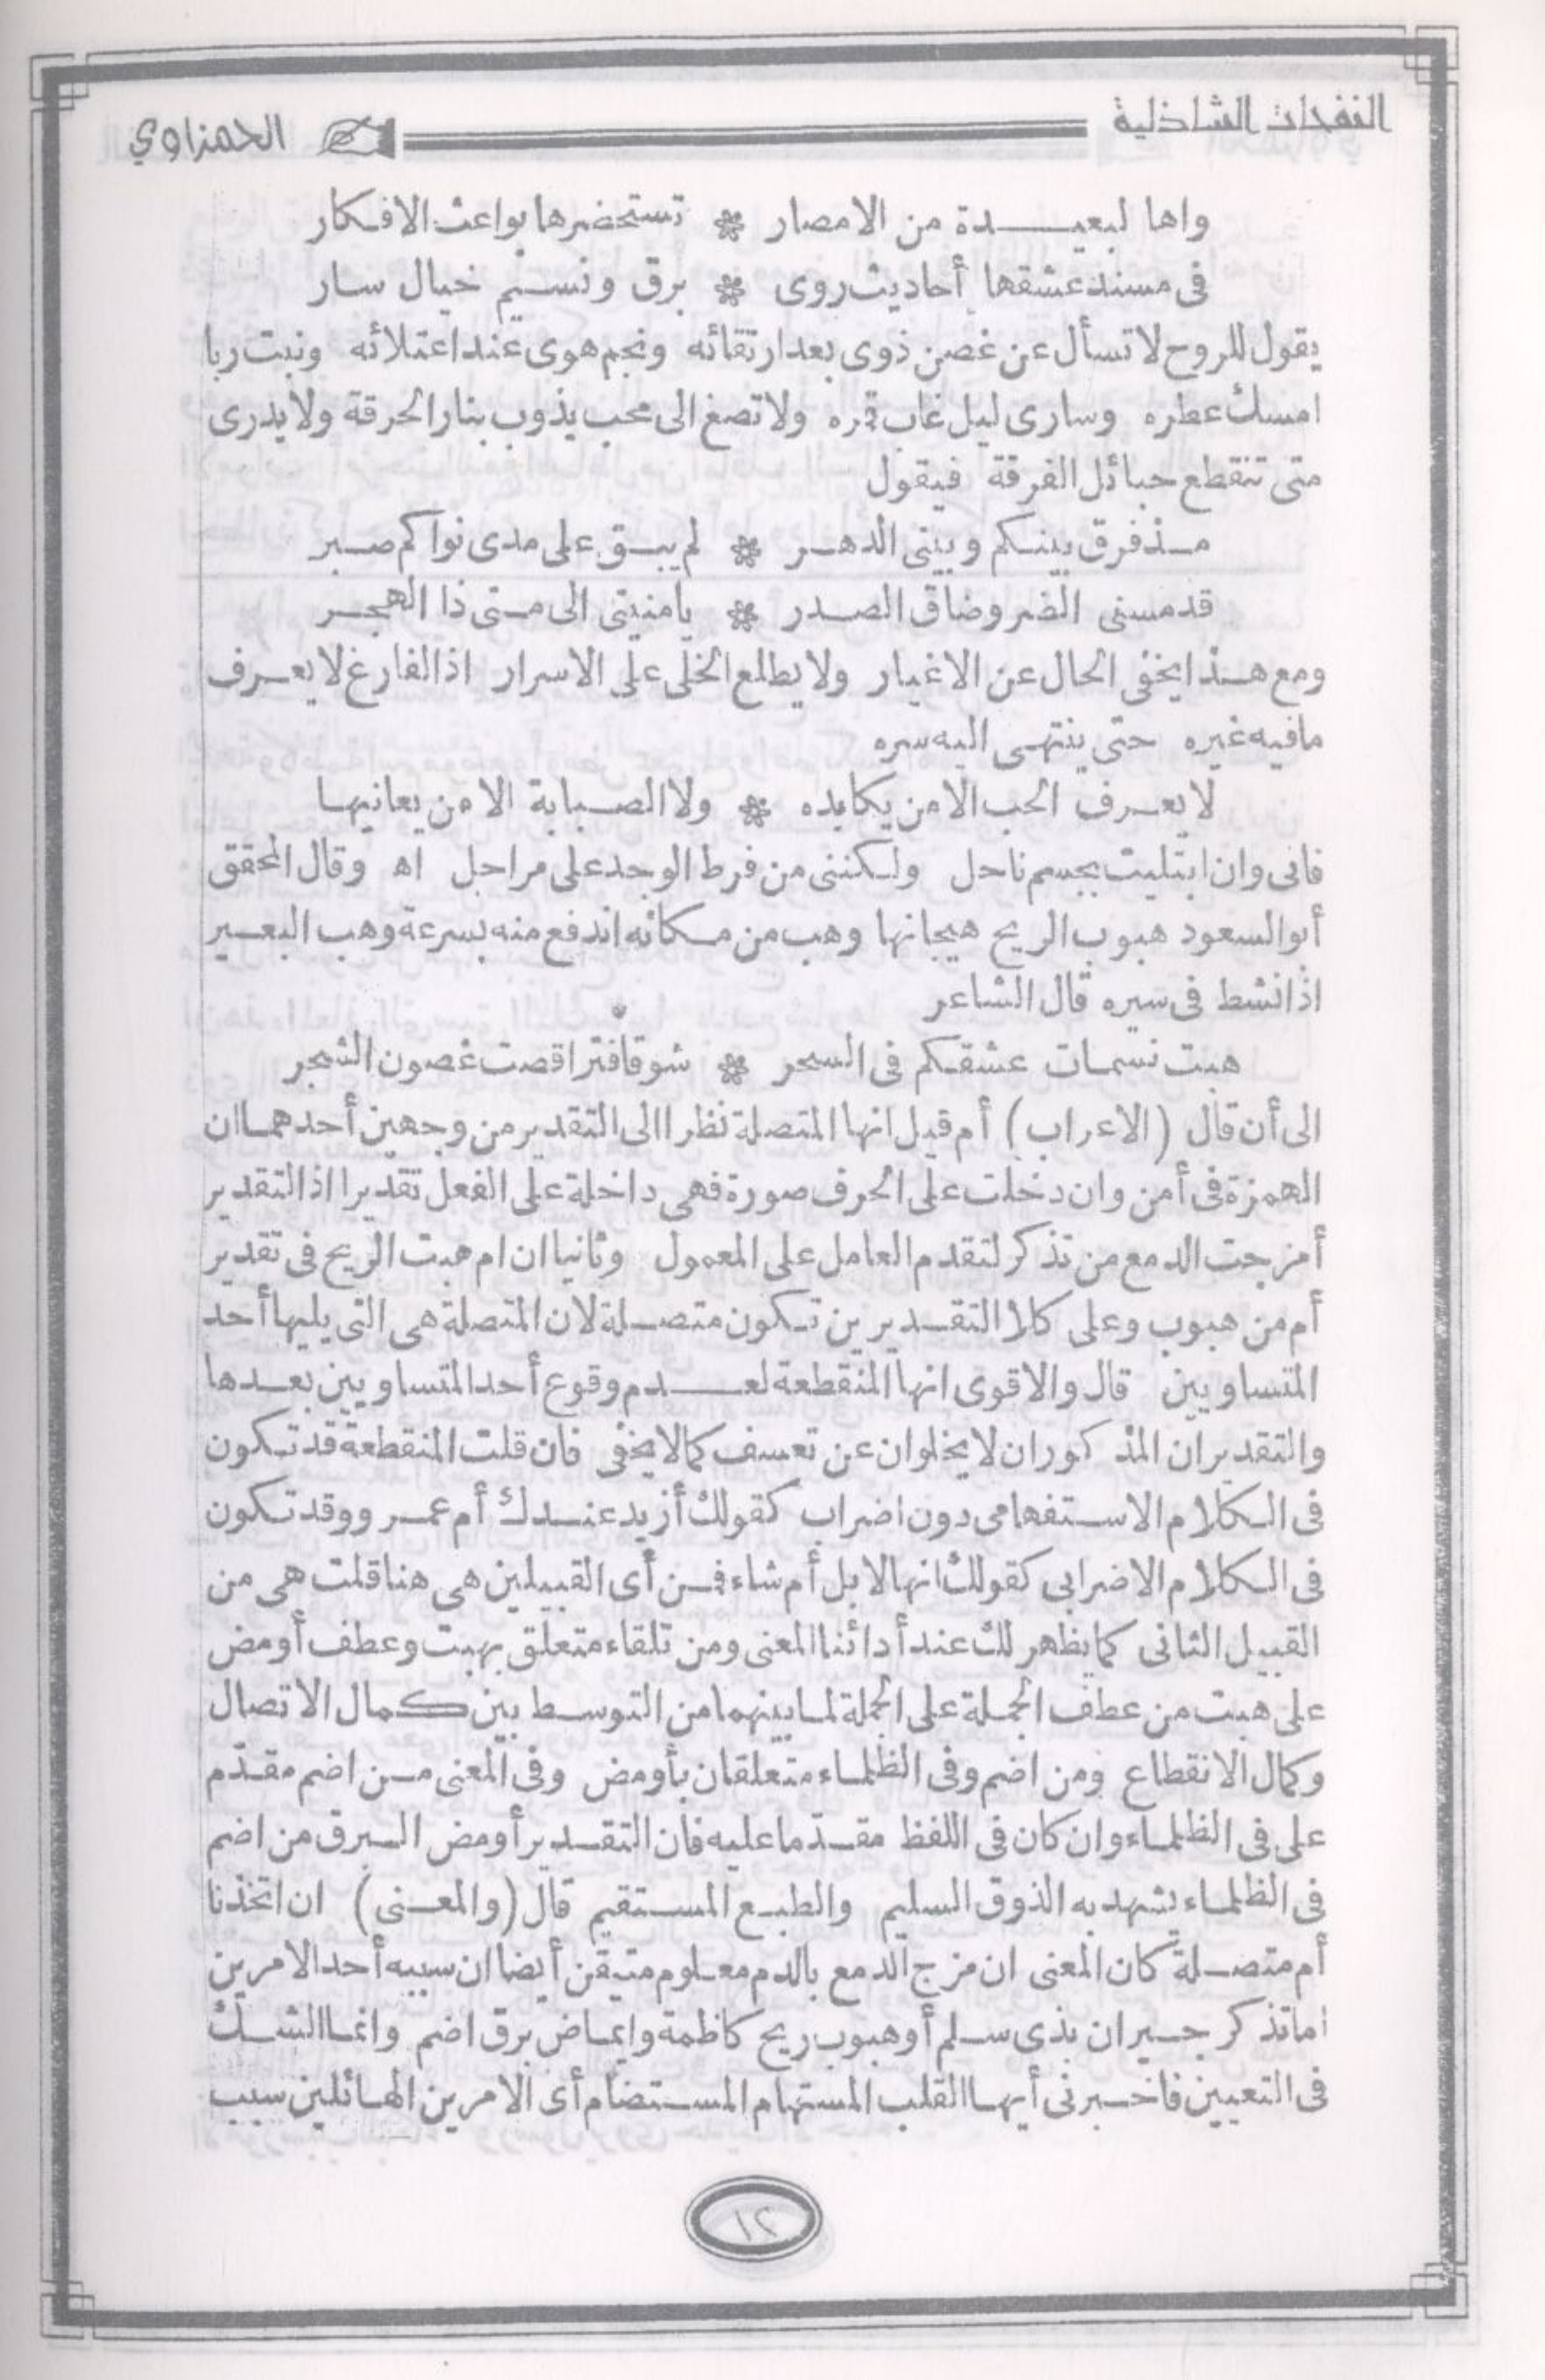 النفحات الشاذلية
الحمزاوي
واها لبعيدة من الامصار * تستحضرها بواعث الافكار
فى مسند عشقها أحاديث روى * برق ونسيم خيال سار
يقول للروح لا تسأل عن غصن ذوى بعد ارتقائه ونجم هوى عند اعتلائه ونبت ربا
امسك عطره وسارى ليل غاب قمره ولا تصغ الى محب يذوب بنار الحرقة ولا يدرى
متى تنقطع حبائل الفرقة فيقول
مذ فرق بينكم وبينى الدهر * لم يبق على مدى نواكم صبر
قد مسنى الضر وضاق الصدر * يا منيتى الى متى ذا الهجر
ومع هذا يخفى الحال عن الاغيار ولا يطلع الخلى على الاسرار اذ الفارغ لا يعرف
ما فيه غيره حتى ينتهى اليه سره
لا يعرف الحب الا من يكابده * ولا الصبابة الا من يعانيها
فانى وان ابتليت بجسم ناحل ولكننى من فرط الوجد على مراحل اه وقال المحقق
أبو السعود هبوب الريح هيجانها وهب من مكانه اندفع منه بسرعة وهب البعير
اذا نشط فى سيره قال الشاعر
هبت نسمات عشقكم فى السحر * شوقا فتراقصت غصون الشجر
الى أن قال (الاعراب) أم قيل انها المتصلة نظرا الى التقدير من وجهين أحدهما ان
الهمزة فى أمن وان دخلت على الحرف صورة فهى داخلة على الفعل تقديرا اذ التقدير
أمزجت الدمع من تذكر لتقدم العامل على المعمول وثانيا ان ام هبت الريح فى تقدير
أم من هبوب وعلى كلا التقديرين تكون متصلة لان المتصلة هى التى يليها أحد
المتساويين قال والاقوى انها المنقطعة لعدم وقوع أحد المتساويين بعدها
والتقديران المذكوران لا يخلوان عن تعسف كما لا يخفى فان قلت المنقطعة قد تكون
فى الكلام الاستفهامى دون اضراب كقولك أزيد عندك أم عمرو وقد تكون
فى الكلام الاضرابى كقولك انها لابل أم شاء فمن أى القبيلين هى هنا قلت هى من
القبيل الثانى كما يظهر لك عند أدائنا المعنى ومن تلقاء متعلق بهبت وعطف أومض
على هبت من عطف الجملة على الجملة لما بينهما من التوسط بين كمال الاتصال
وكمال الانقطاع ومن اضم وفى الظلماء متعلقان بأومض وفى المعنى من اضم مقدّم
على فى الظلماء وان كان فى اللفظ مقدّما عليه فان التقدير أومض البرق من اضم
فى الظلماء يشهد به الذوق السليم والطبع المستقيم قال (والمعنى) ان اتخذنا
أم متصلة كان المعنى ان مزج الدمع بالدم معلوم متيقن أيضا ان سببه أحد الامرين
اما تذكر جيران بذى سلم أو هبوب ريح كاظمة وايماض برق اضم وانما الشك
فى التعيين فاخبرنى أيها القلب المستهام المستضام أى الامرين الهائلين سبب
٢١